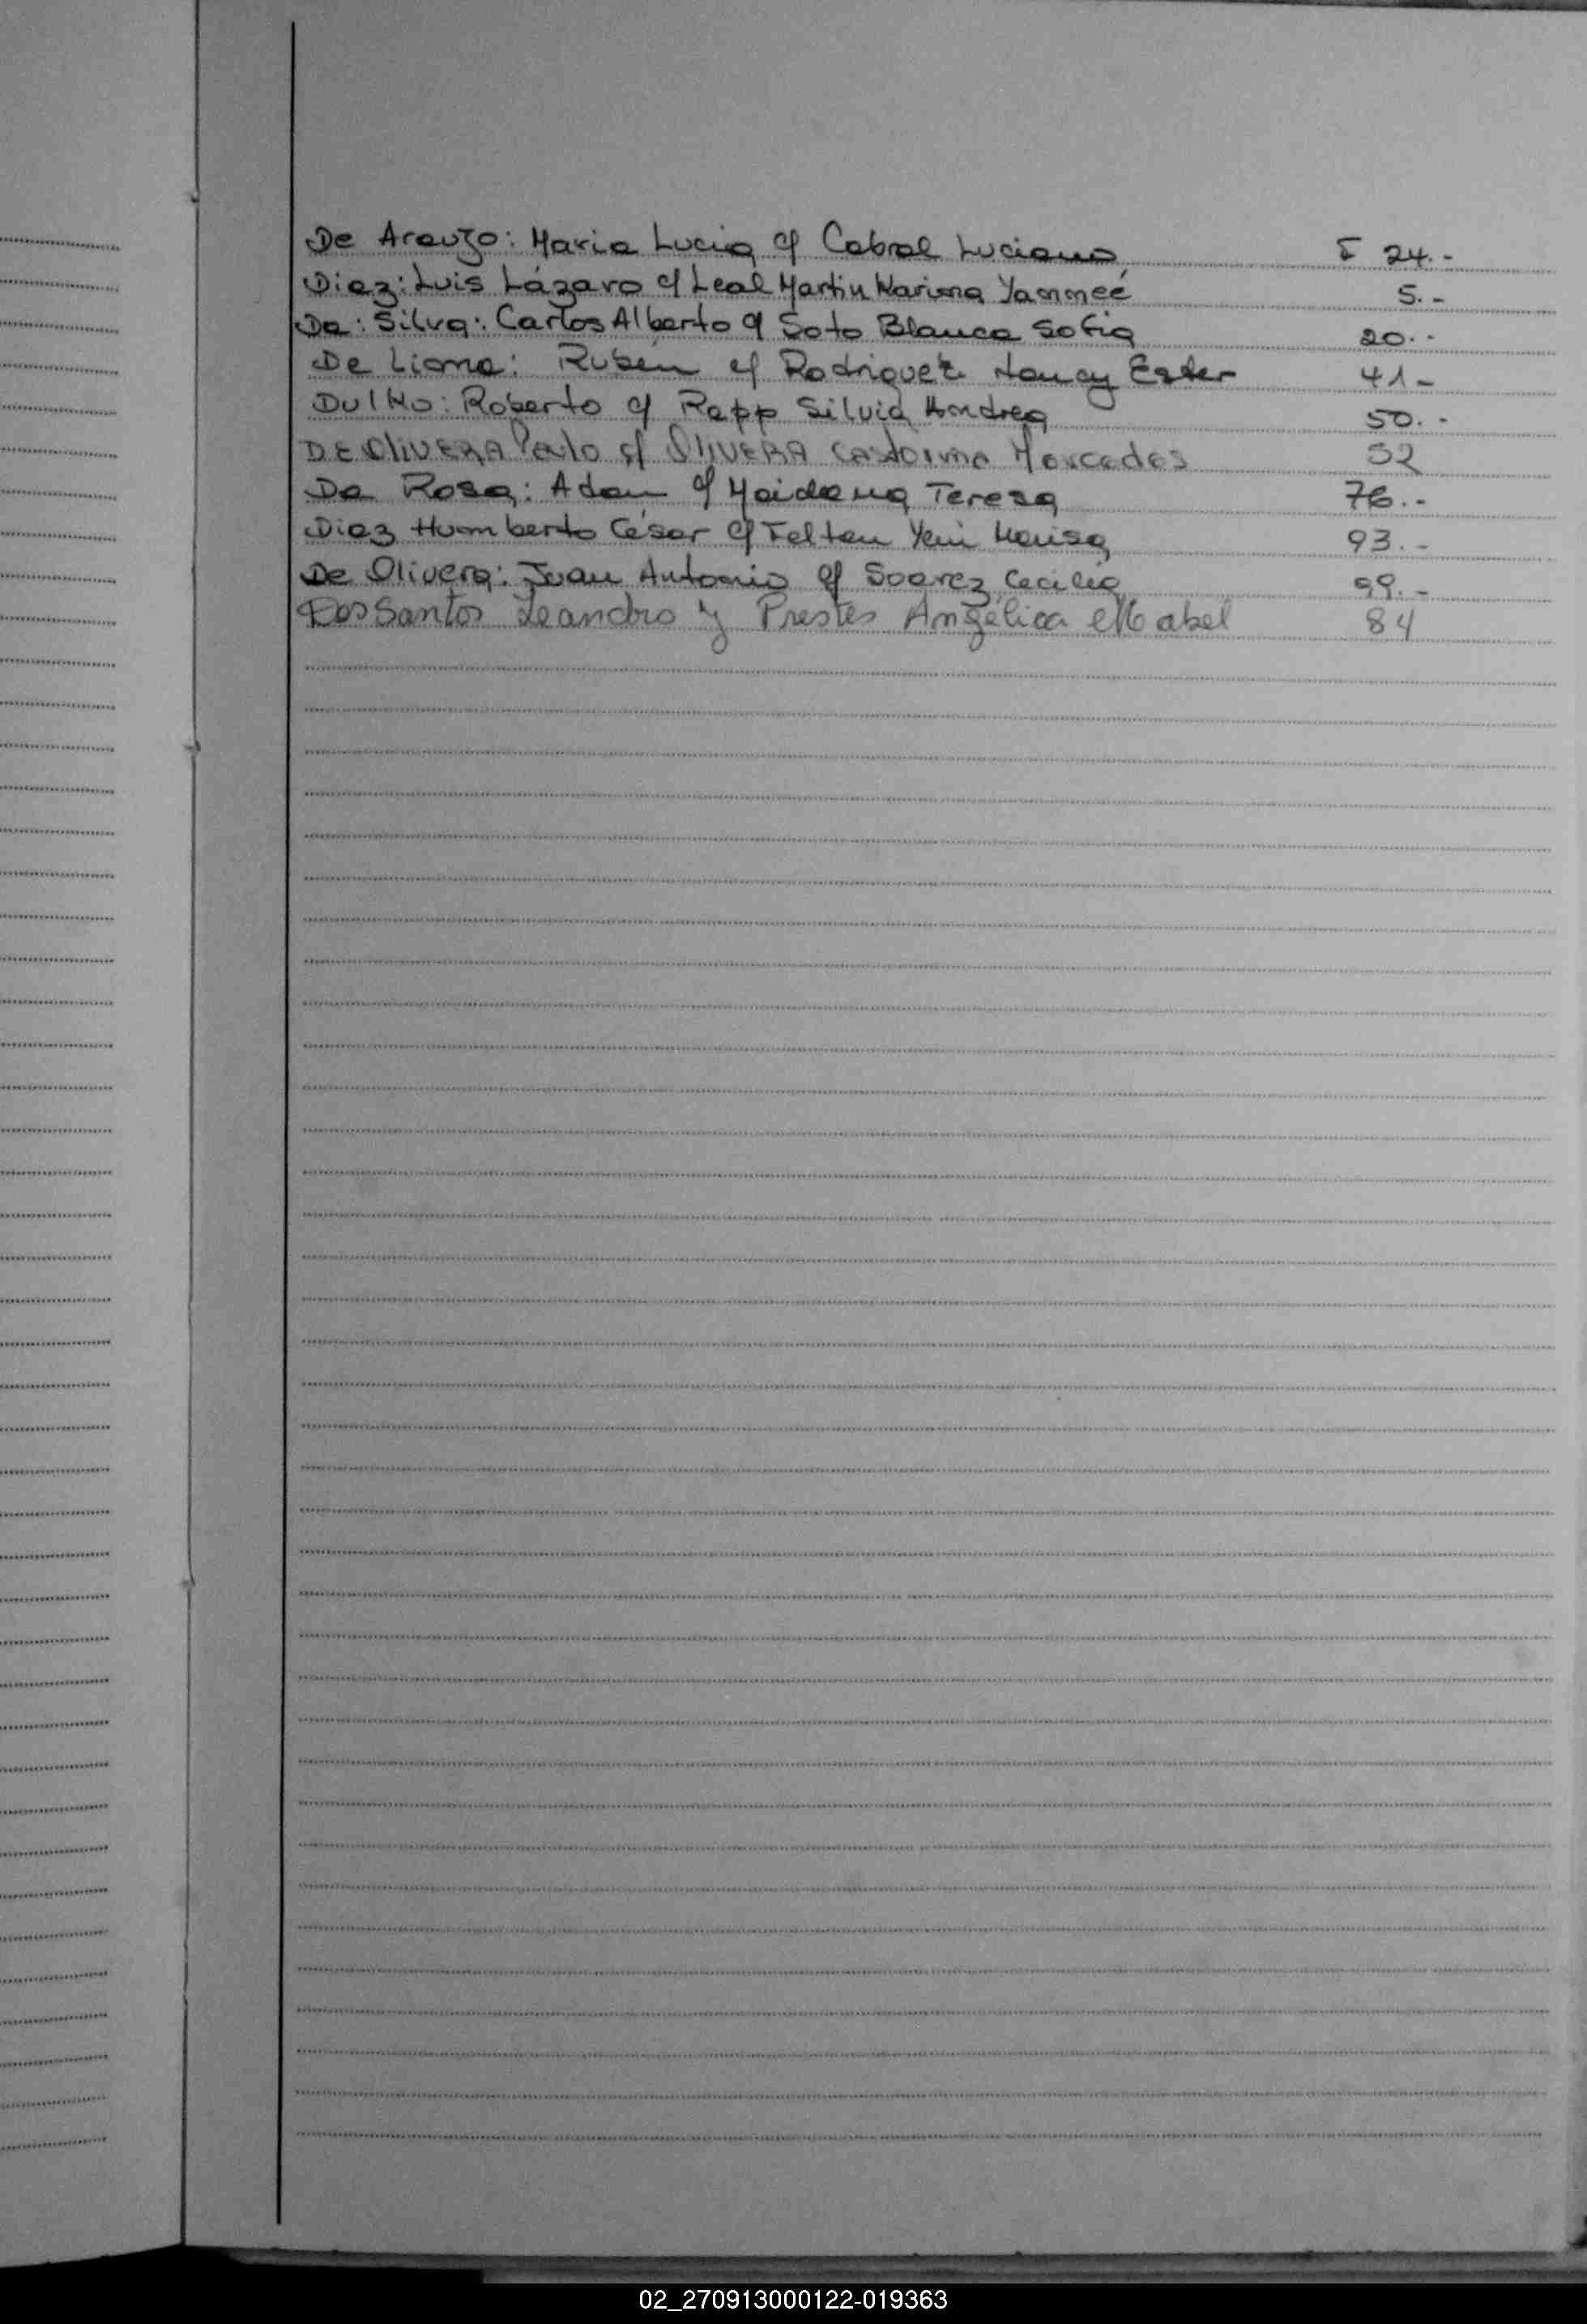 De Araujo: Maria Lucia c/ Cabral Luciano I 24.-
Diaz: Luis Lázaro c/ Leal Martin Mariana Yammeé 5.-
Da: Silva: Carlos Alberto c/ Soto Blanca Sofia 20.-
De Lima: Rubén c/ Rodriguez Nancy Ester 41-
Dulko: Roberto c/ Rapp Silvia Andrea 50.-
DE OliVERA Paulo c/ OliVERA Mercedes 52
Da Rosa: Adan c/ Maidana Teresa 76.-
Diaz Humberto César c/ Felten Yeni Marisa 93.-
De Olivera: Juan Antonio c/ Soarez Cecilia 99.-
Dos Santos Leandro y Prestes Angélica Mabel 84
02_270913000122-019363